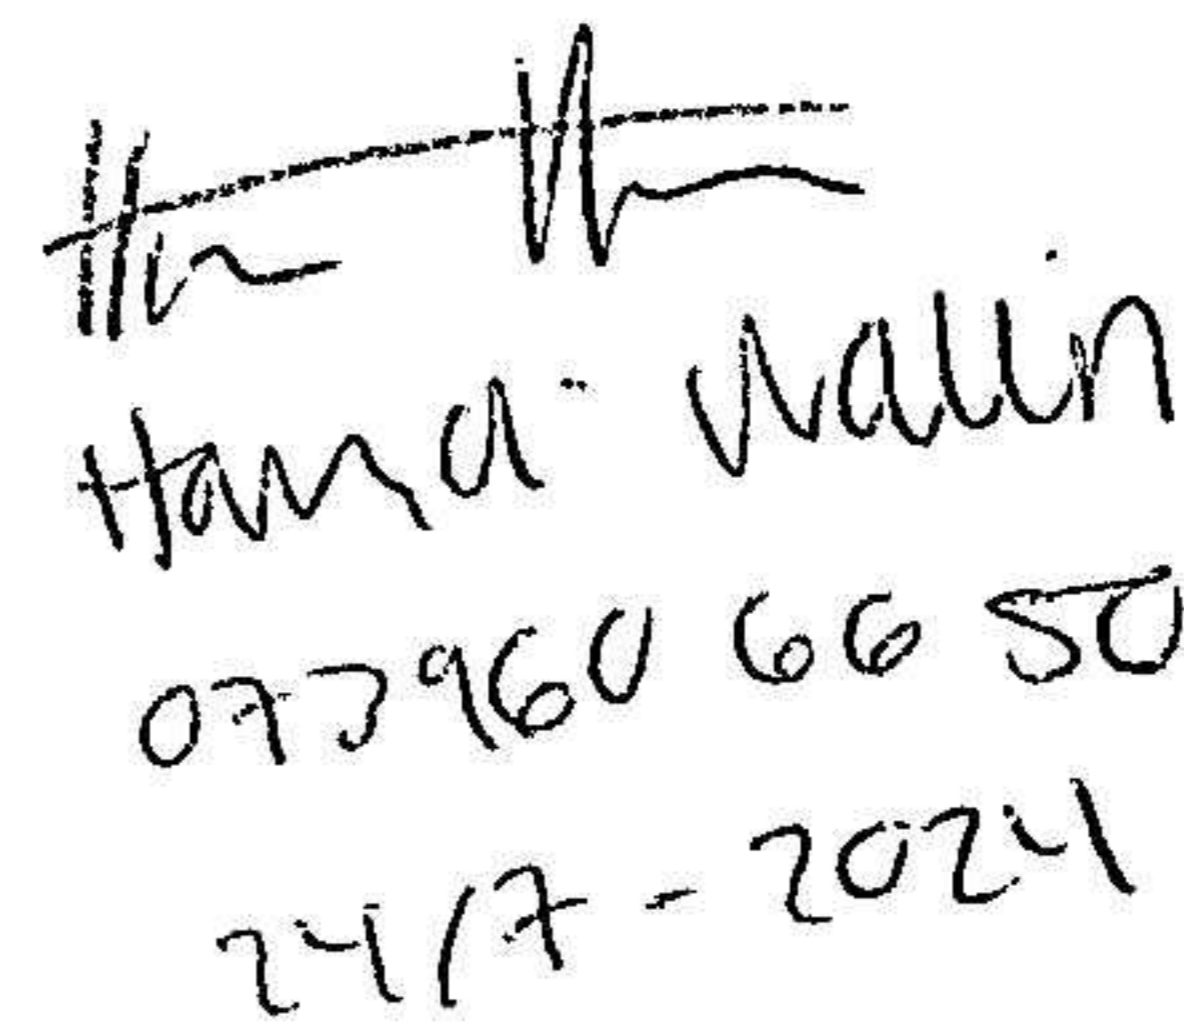 Hanna Wallin
073960 66 50
24/7 - 2024